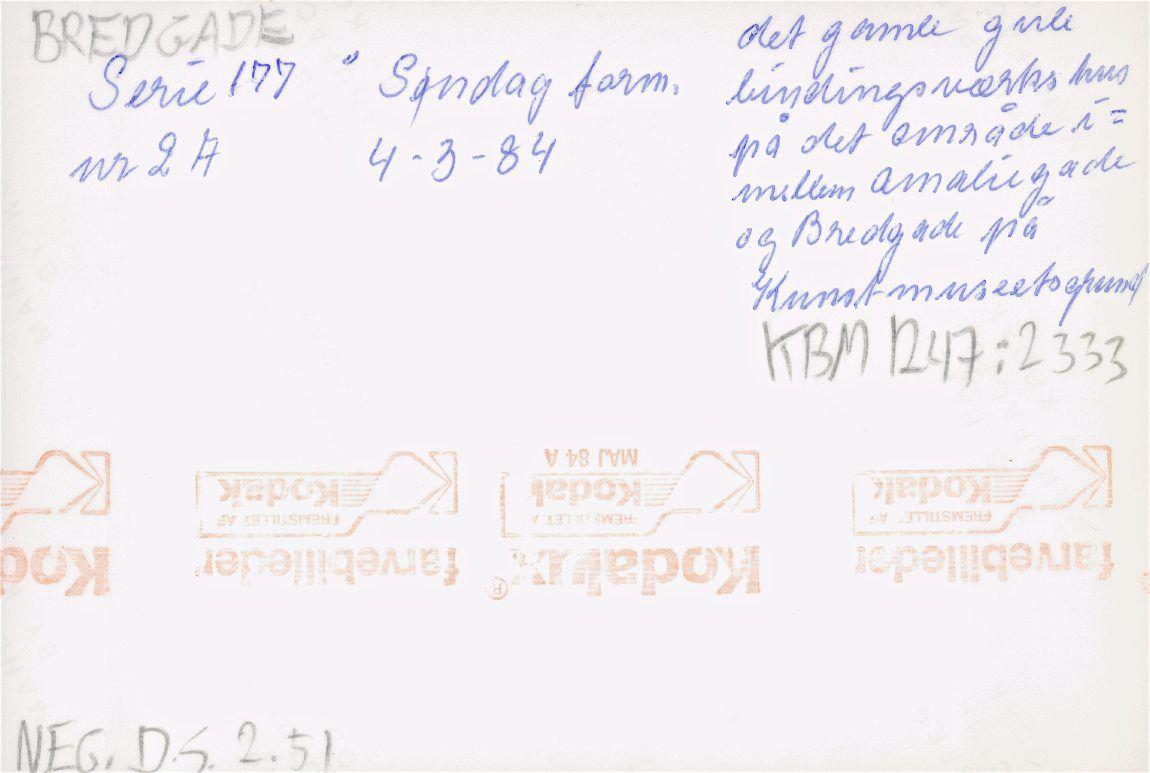 BREDGADE
Serie 177 " Søndag form.
nr 2 A 4-3-84
det gamle gule
bindingsværks hus
på det område i=
mellem Amaliegade
og Bredgade på
Kunstmuseetsgrund
KBM 1247:2333
MAJ 84 A
Kodak Kodak Kodak
FREMSTILLET AF FREMSTILLET A FREMSTILLET AF
Kod farvebilleder Kodalux® farvebilleder
NEG. D.S. 2.51